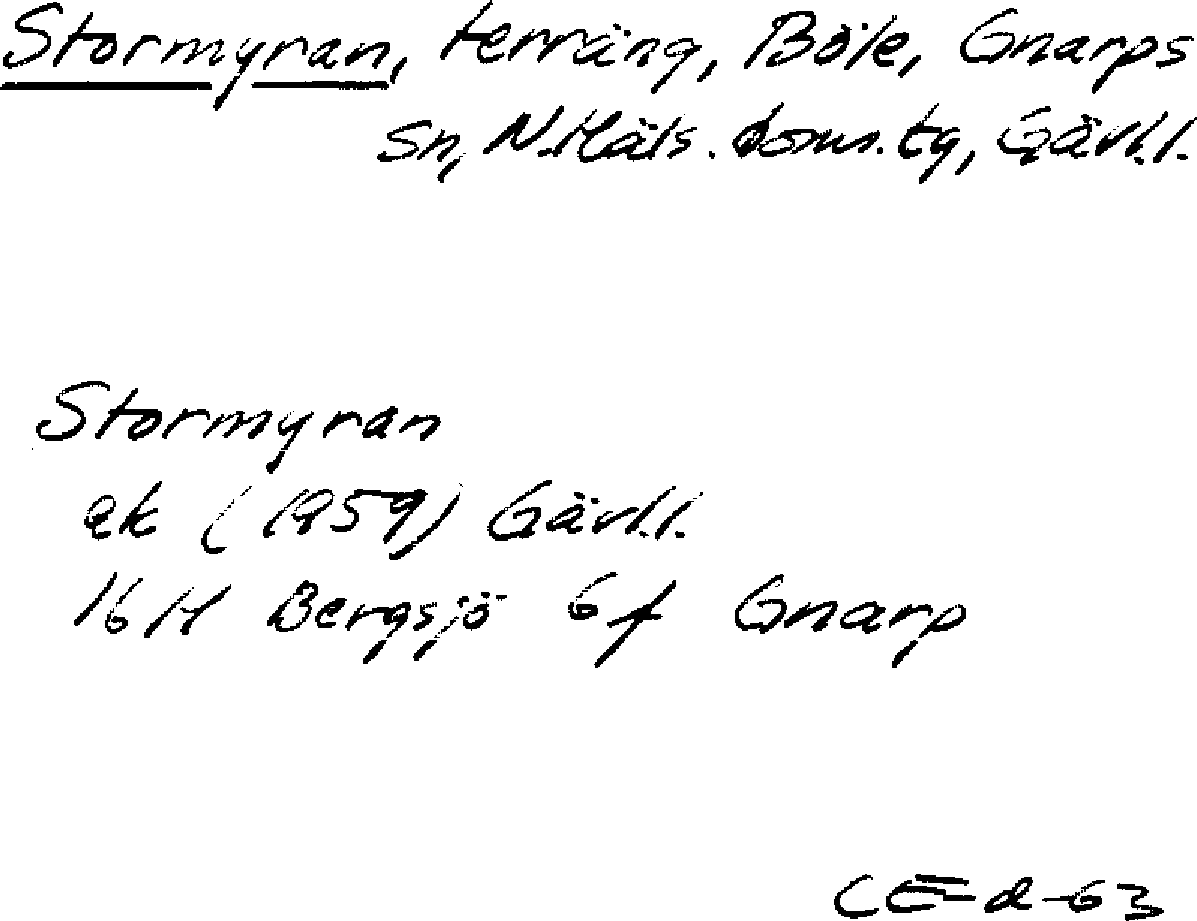 Stormyran, terräng, Böle, Gnarps
sn, N. Häls. doms. tg, Gävl.l.
Stormyran
ek (1959) Gävl.l.
16H Bergsjö 6f Gnarp
CE-d-63